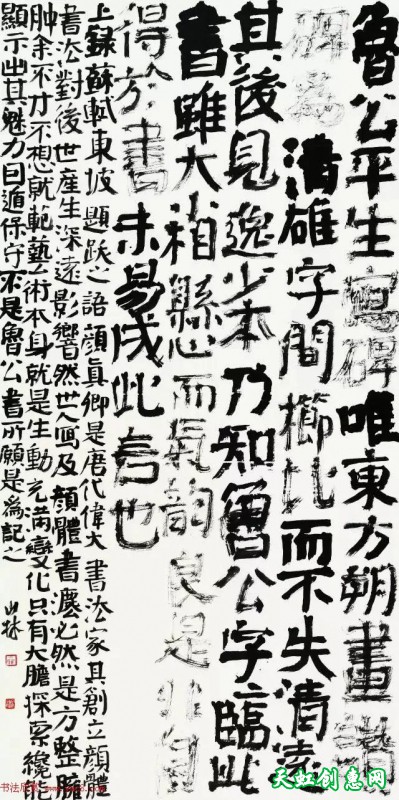 魯公平生寫碑唯東方朔畫讚
碑為清雄字間櫛比而不失清遠
其後見逸少本乃知魯公字字臨此
書雖大小相懸而氣韻良是非自
得於書未易成此言也
上錄蘇軾東坡題跋之語顏真卿是唐代偉大書法家其創立顏體
書法對後世產生深遠影響然世人寫及顏體書法必然是方整臃
腫余不才不想就範藝術本身就是生動充滿變化只有大膽探索纔能
顯示出其魅力曰遁保守不是魯公書所願是為記之
山林
书法欣赏
天虹创意网